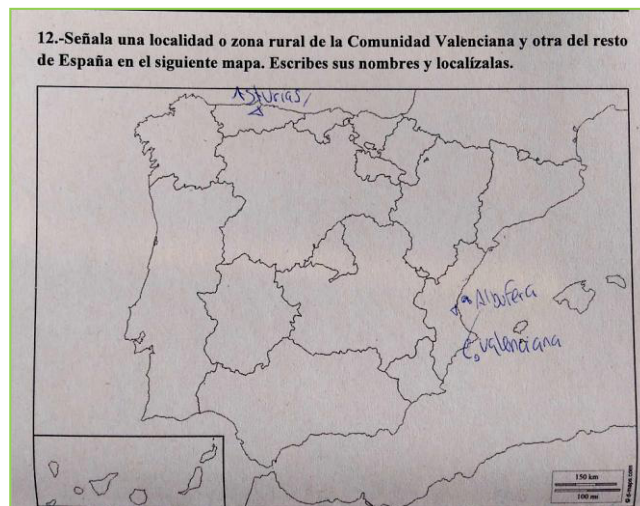 12.-Señala una localidad o zona rural de la Comunidad Valenciana y otra del resto
de España en el siguiente mapa. Escribes sus nombres y localízalas.
Asturias
Albufera
C. valenciana
150 km
100 mi
© d-maps.com